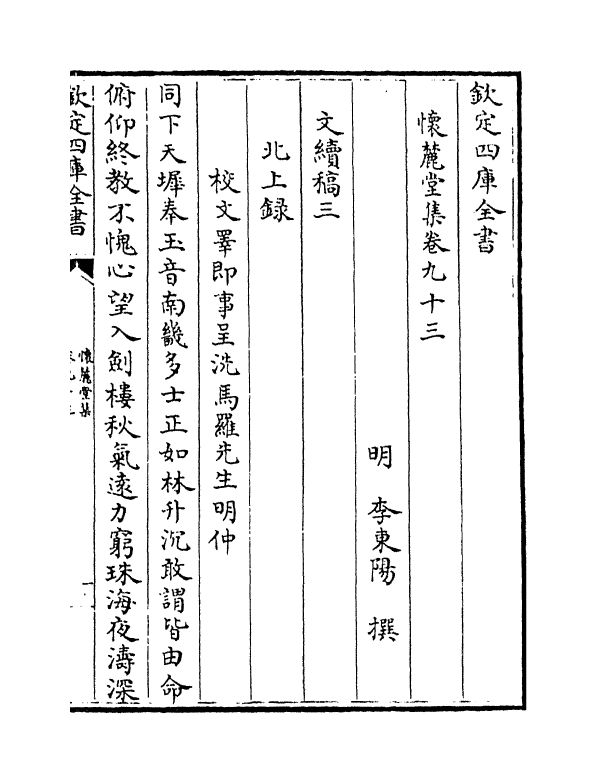 欽定四庫全書
懷麓堂集卷九十三
明　李東陽　撰
文續稿三
北上錄
校文畢即事呈洗馬羅先生明仲
同下天墀奉玉音南畿多士正如林升沉敢謂皆由命
俯仰終教不愧心望入劍樓秋氣遠力窮珠海夜濤深
欽定四庫全書
懷麓堂集